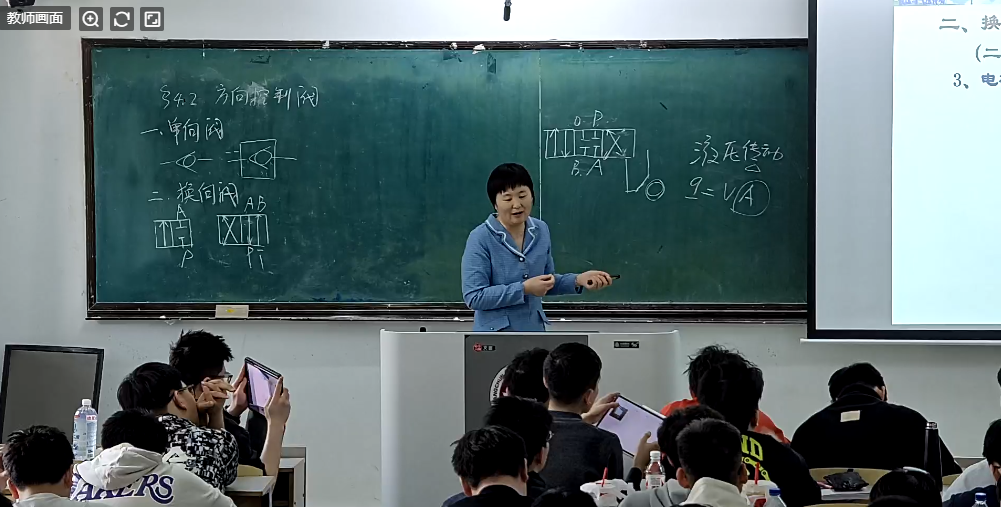 教师画面
§4.2 方向控制阀
一、单向阀
二、换向阀
A
P
A B
P T
O P
B A
液压传动
q = v A
二、换
(二
3、电
LAKERS